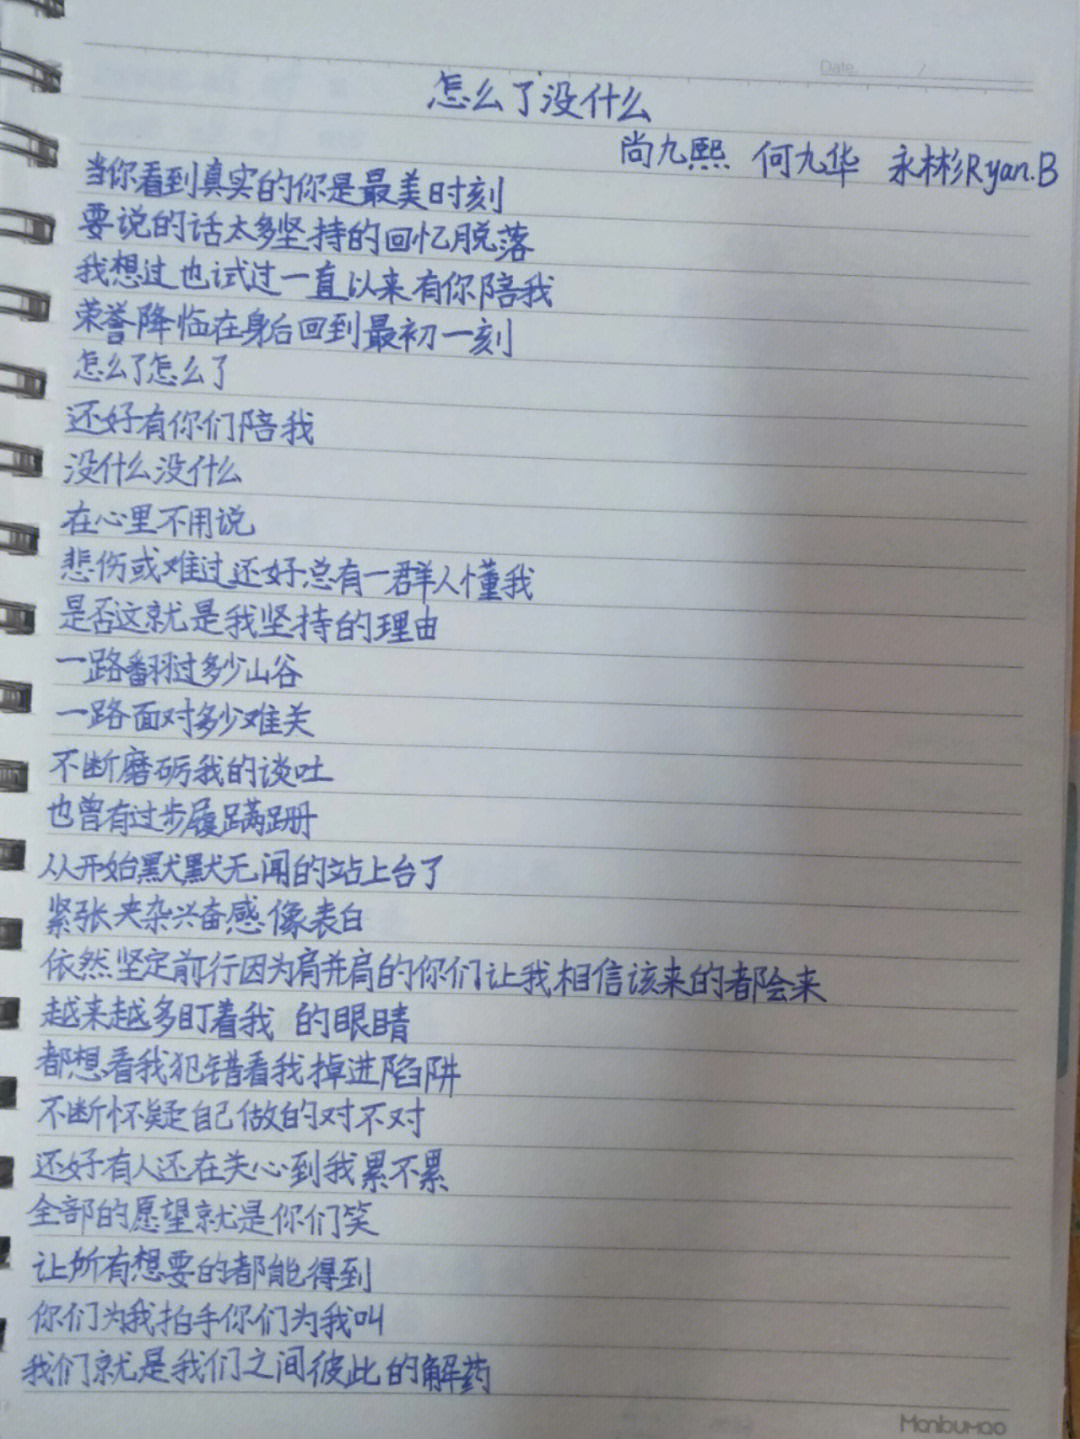 Date. /
怎么了没什么
尚九熙 何九华 永彬Ryan.B
当你看到真实的你是最美时刻
要说的话太多坚持的回忆脱落
我想过也试过一直以来有你陪我
荣誉降临在身后回到最初一刻
怎么了怎么了
还好有你们陪我
没什么没什么
在心里不用说
悲伤或难过还好总有一群人懂我
是否这就是我坚持的理由
一路翻过多少山谷
一路面对多少难关
不断磨砺我的谈吐
也曾有过步履蹒跚
从开始默默无闻的站上台了
紧张夹杂兴奋感像表白
依然坚定前行因为肩并肩的你们让我相信该来的都会来
越来越多盯着我 的眼睛
都想看我犯错看我掉进陷阱
不断怀疑自己做的对不对
还好有人还在关心到我累不累
全部的愿望就是你们笑
让所有想要的都能得到
你们为我拍手你们为我叫
我们就是我们之间彼此的解药
Manbumao